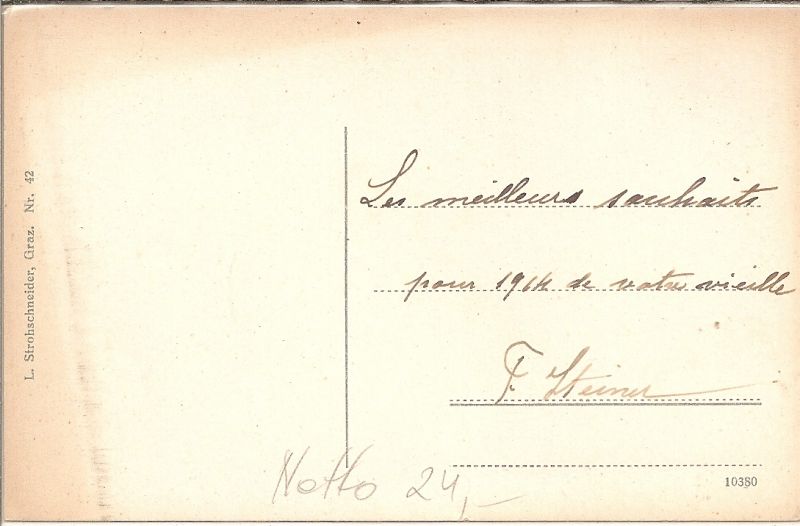 L. Strohschneider, Graz. Nr. 42
Les meilleurs souhaits
pour 1914 de votre vieille
F. Steiner
Netto 24,-
10380